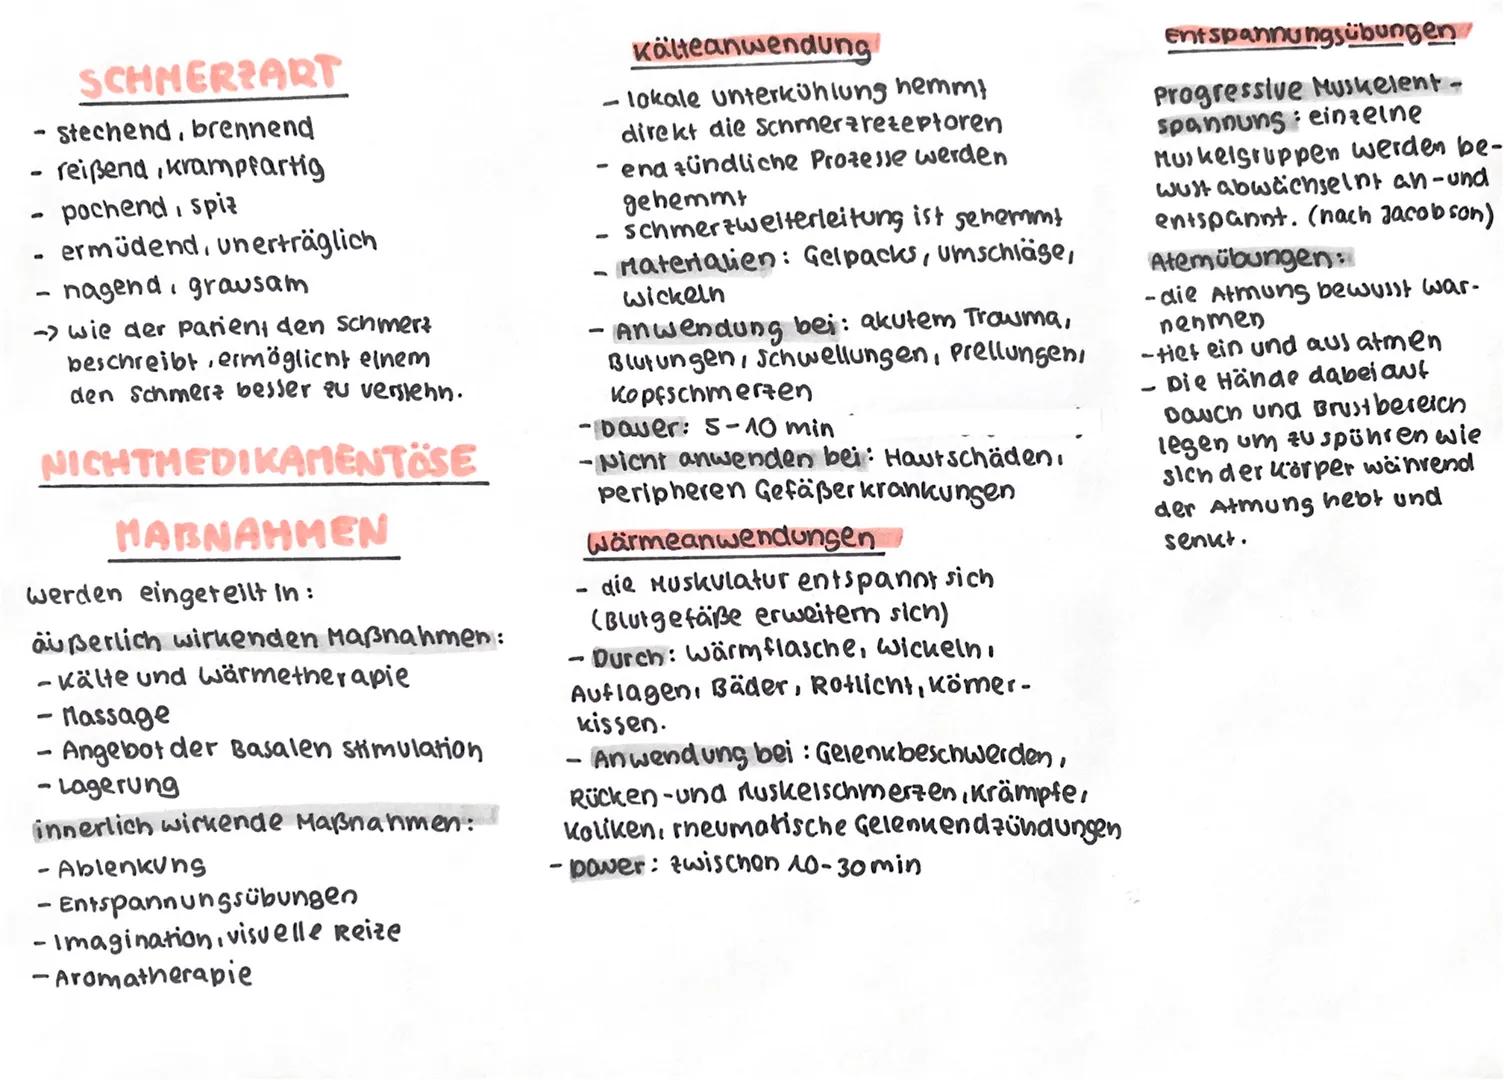 SCHMERZART
- stechend, brennend
- reißend, krampfartig
- pochend, spiz
- ermüdend, unerträglich
- nagend, grausam
-> wie der Patient den Schmerz
beschreibt, ermöglicht einem
den Schmerz besser zu verstehn.
NICHTMEDIKAMENTÖSE
MAßNAHMEN
werden eingeteilt in:
äußerlich wirkenden Maßnahmen:
- Kälte und Wärmetherapie
- Massage
- Angebot der Basalen Stimulation
- Lagerung
innerlich wirkende Maßnahmen:
- Ablenkung
- Entspannungsübungen
- Imagination, visuelle Reize
- Aromatherapie
Kälteanwendung
- lokale unterkühlung hemmt
direkt die Schmerzrezeptoren
- endzündliche Prozesse werden
gehemmt
- schmerzweiterleitung ist gehemmt
- Materialien: Gelpacks, Umschläge,
wickeln
- Anwendung bei: akutem Trauma,
Blutungen, Schwellungen, Prellungen,
Kopfschmerzen
- Dauer: 5-10 min
- Nicht anwenden bei: Hautschäden,
peripheren Gefäßerkrankungen
Wärmeanwendungen
- die Muskulatur entspannt sich
(Blutgefäße erweitern sich)
- Durch: Wärmflasche, Wickeln,
Auflagen, Bäder, Rotlicht, Körner-
kissen.
- Anwendung bei: Gelenkbeschwerden,
Rücken-und Muskelschmerzen, Krämpfe,
Koliken, rheumatische Gelenkendzündungen
- Dauer: zwischen 10-30 min
Entspannungsübungen
Progressive Muskelent-
spannung: einzelne
Muskelgruppen werden be-
wust abwächselnt an-und
entspannt. (nach Jacobson)
Atemübungen:
- die Atmung bewusst war-
nehmen
- tief ein und aus atmen
- Die Hände dabei auf
Bauch und Brustbereich
legen um zu spühren wie
sich der Körper während
der Atmung hebt und
senkt.